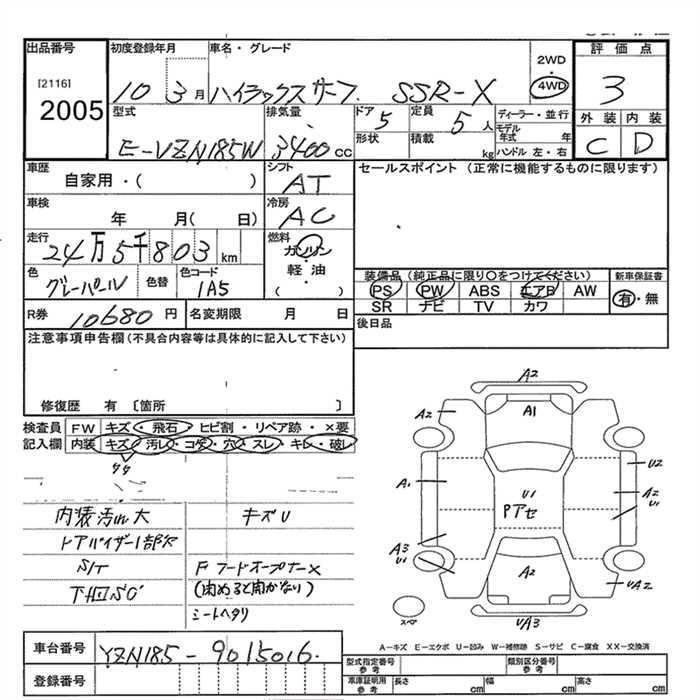 出品番号
[2116]
2005
初度登録年月
10 3月
車名・グレード
ハイラックスサーフ SSR-X
2WD
4WD
評価点
3
外装 内装
C D
型式
E-VZN185W
排気量
3400cc
ドア
5
定員
5人
形状
積載
kg
ディーラー・並行
モデル年式 年
ハンドル 左・右
車歴
自家用・( )
シフト
AT
車検
年 月( 日)
冷房
AC
走行
24万5千803km
燃料
ガソリン
軽油
( )
色
グレーパール
色替
色コード
1A5
R券
10680円
名変期限 月 日
セールスポイント (正常に機能するものに限ります)
装備品 (純正品に限り○をつけてください)
PS PW ABS エアB AW
SR ナビ TV カワ
新車保証書
有・無
後日品
注意事項申告欄 (不具合内容等は具体的に記入して下さい)
修復歴 有〔箇所 〕
検査員記入欄
FW キズ・飛石・ヒビ割・リペア跡・×要
内装 キズ・汚レ・コゲ・穴・スレ・キレ・破レ
内装汚れ大
キズU
ドアバイザー1部欠
S/T
Fフードオープナー×
(閉めると開かない)
下回SG
シートヘタリ
A2
A2
A1
A1
U2
A2
U1
U1
Pアセ
A3
U1
A2
UA2
UA3
スペア
A-キズ E-エクボ U-凹み W-補修跡 S-サビ C-腐食 XX-交換済
車台番号
VZN185-9015016.
登録番号
型式指定番号
参考
類別区分番号
参考
車庫証明用
参考
長さ cm 幅 cm 高さ cm